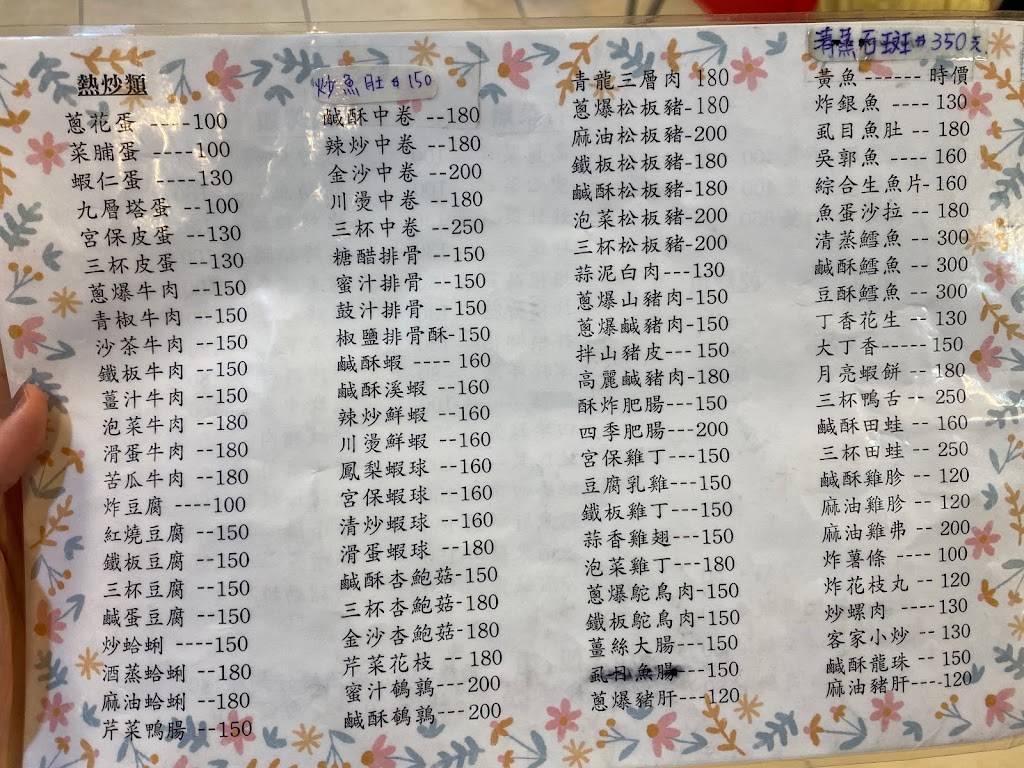 熱炒類
蔥花蛋 ----100
菜脯蛋 ----100
蝦仁蛋 ----130
九層塔蛋 --100
宮保皮蛋 --130
三杯皮蛋 --130
蔥爆牛肉 --150
青椒牛肉 --150
沙茶牛肉 --150
鐵板牛肉 --150
薑汁牛肉 --150
泡菜牛肉 --180
滑蛋牛肉 --180
苦瓜牛肉 --180
炸豆腐 ----100
紅燒豆腐 --150
鐵板豆腐 --150
三杯豆腐 --150
鹹蛋豆腐 --150
炒蛤蜊 ----150
酒蒸蛤蜊 --180
麻油蛤蜊 --180
芹菜鴨腸 --150
炒魚肚 $150
鹹酥中卷 --180
辣炒中卷 --180
金沙中卷 --200
川燙中卷 --180
三杯中卷 --250
糖醋排骨 --150
蜜汁排骨 --150
鼓汁排骨 --150
椒鹽排骨酥-150
鹹酥蝦 ---- 160
鹹酥溪蝦 --160
辣炒鮮蝦 --160
川燙鮮蝦 --160
鳳梨蝦球 --160
宮保蝦球 --160
清炒蝦球 --160
滑蛋蝦球 --180
鹹酥杏鮑菇-150
三杯杏鮑菇-180
金沙杏鮑菇-180
芹菜花枝 -- 180
蜜汁鵪鶉---200
鹹酥鵪鶉---200
青龍三層肉 180
蔥爆松板豬-180
麻油松板豬-200
鐵板松板豬-180
鹹酥松板豬-180
泡菜松板豬-200
三杯松板豬-200
蒜泥白肉---130
蔥爆山豬肉-150
蔥爆鹹豬肉-150
拌山豬皮---150
高麗鹹豬肉-180
酥炸肥腸---150
四季肥腸---200
宮保雞丁---150
豆腐乳雞---150
鐵板雞丁---150
蒜香雞翅---150
泡菜雞丁---180
蔥爆鴕鳥肉-150
鐵板鴕鳥肉-150
薑絲大腸---150
虱目魚腸---150
蔥爆豬肝---120
清蒸石斑$350元
黃魚------ 時價
炸銀魚 ---- 130
虱目魚肚 -- 180
吳郭魚 ---- 160
綜合生魚片- 160
魚蛋沙拉 -- 180
清蒸鱈魚 -- 300
鹹酥鱈魚 -- 300
豆酥鱈魚 -- 300
丁香花生 -- 130
大丁香----- 150
月亮蝦餅 -- 180
三杯鴨舌 -- 250
鹹酥田蛙 -- 160
三杯田蛙 -- 250
鹹酥雞胗 -- 120
麻油雞胗 -- 120
麻油雞弗 -- 200
炸薯條 ---- 100
炸花枝丸 -- 120
炒螺肉 ---- 130
客家小炒 -- 130
鹹酥龍珠 -- 150
麻油豬肝---120